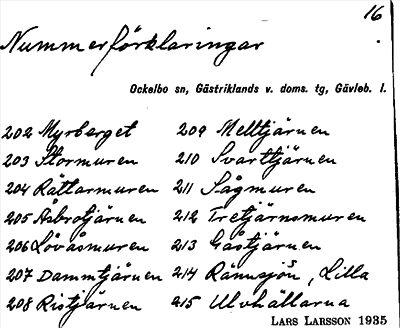 16
Nummerförklaringar
Ockelbo sn, Gästriklands v. doms. tg, Gävleb. l.
202 Myrberget
203 Stormuren
204 Rättarmuren
205 Åsbrotjärnen
206 Lövåsmuren
207 Dammtjärnen
208 Ristjärnen
209 Melltjärnen
210 Svarttjärnen
211 Sågmuren
212 Tretjärnsmuren
213 Gåstjärnen
214 Rännsjön, Lilla
215 Ulvhällarna
LARS LARSSON 1935